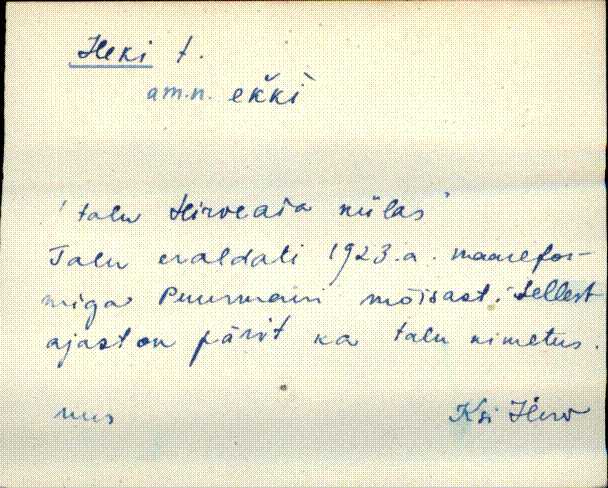 Heki t.
am.n. ekki
'talu Hirveaia külas'
Talu eraldati 1923.a. maarefor-
miga Puurmani mõisast. Sellest
ajast on pärit ka talu nimetus.
Ksi Hirv